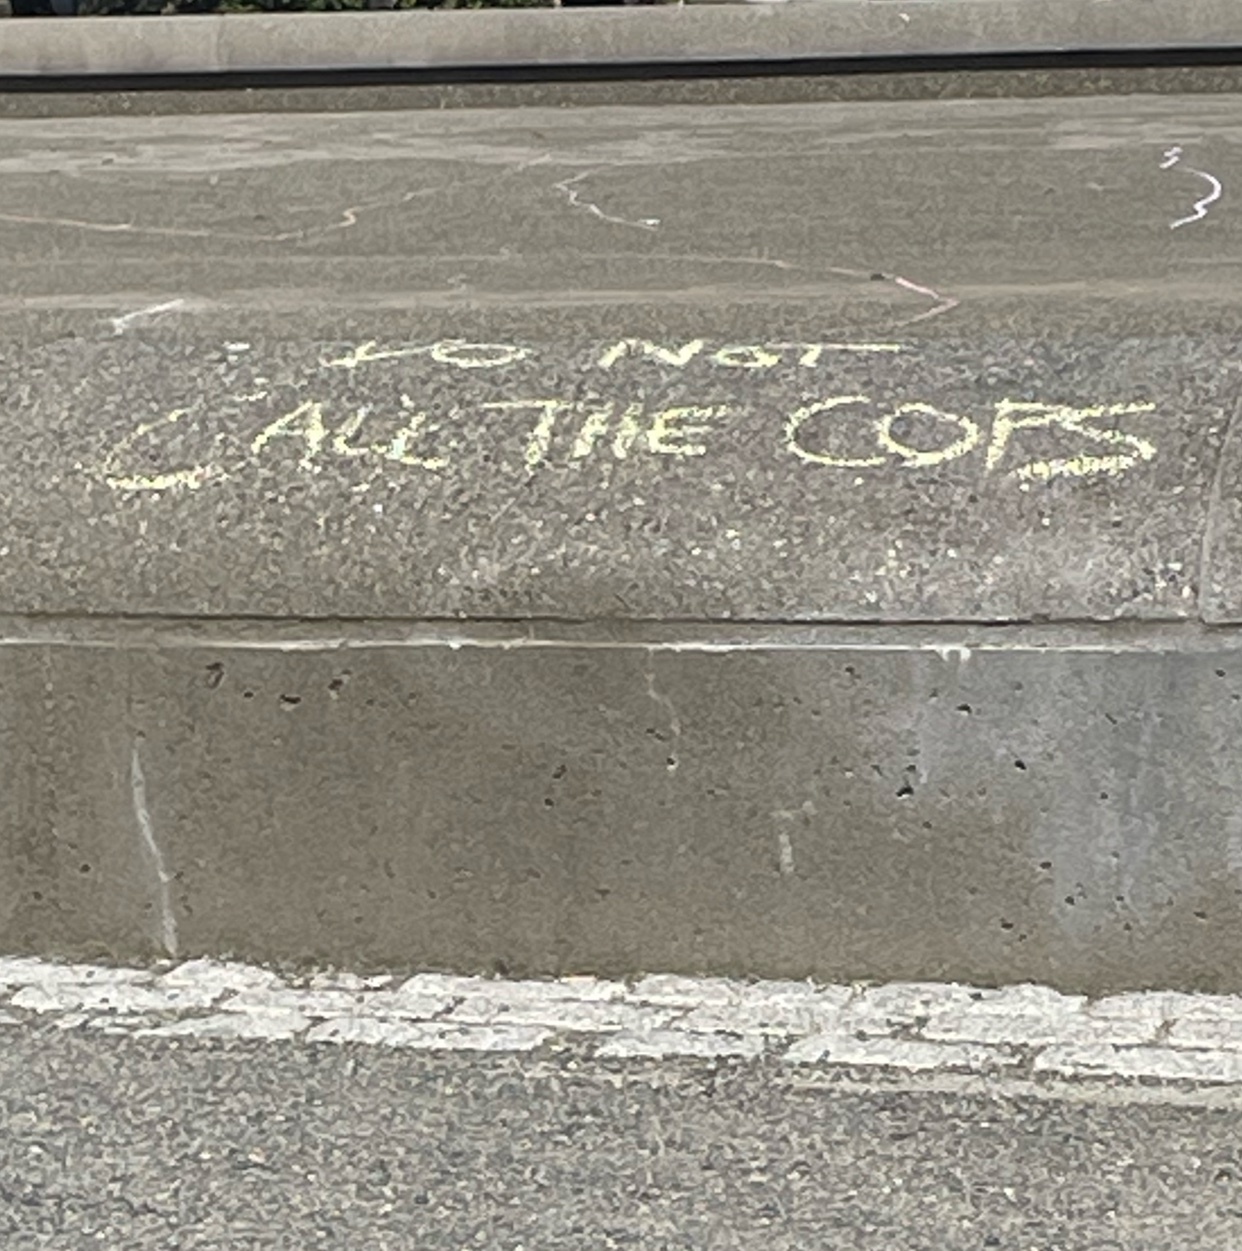 DO NOT
CALL THE COPS